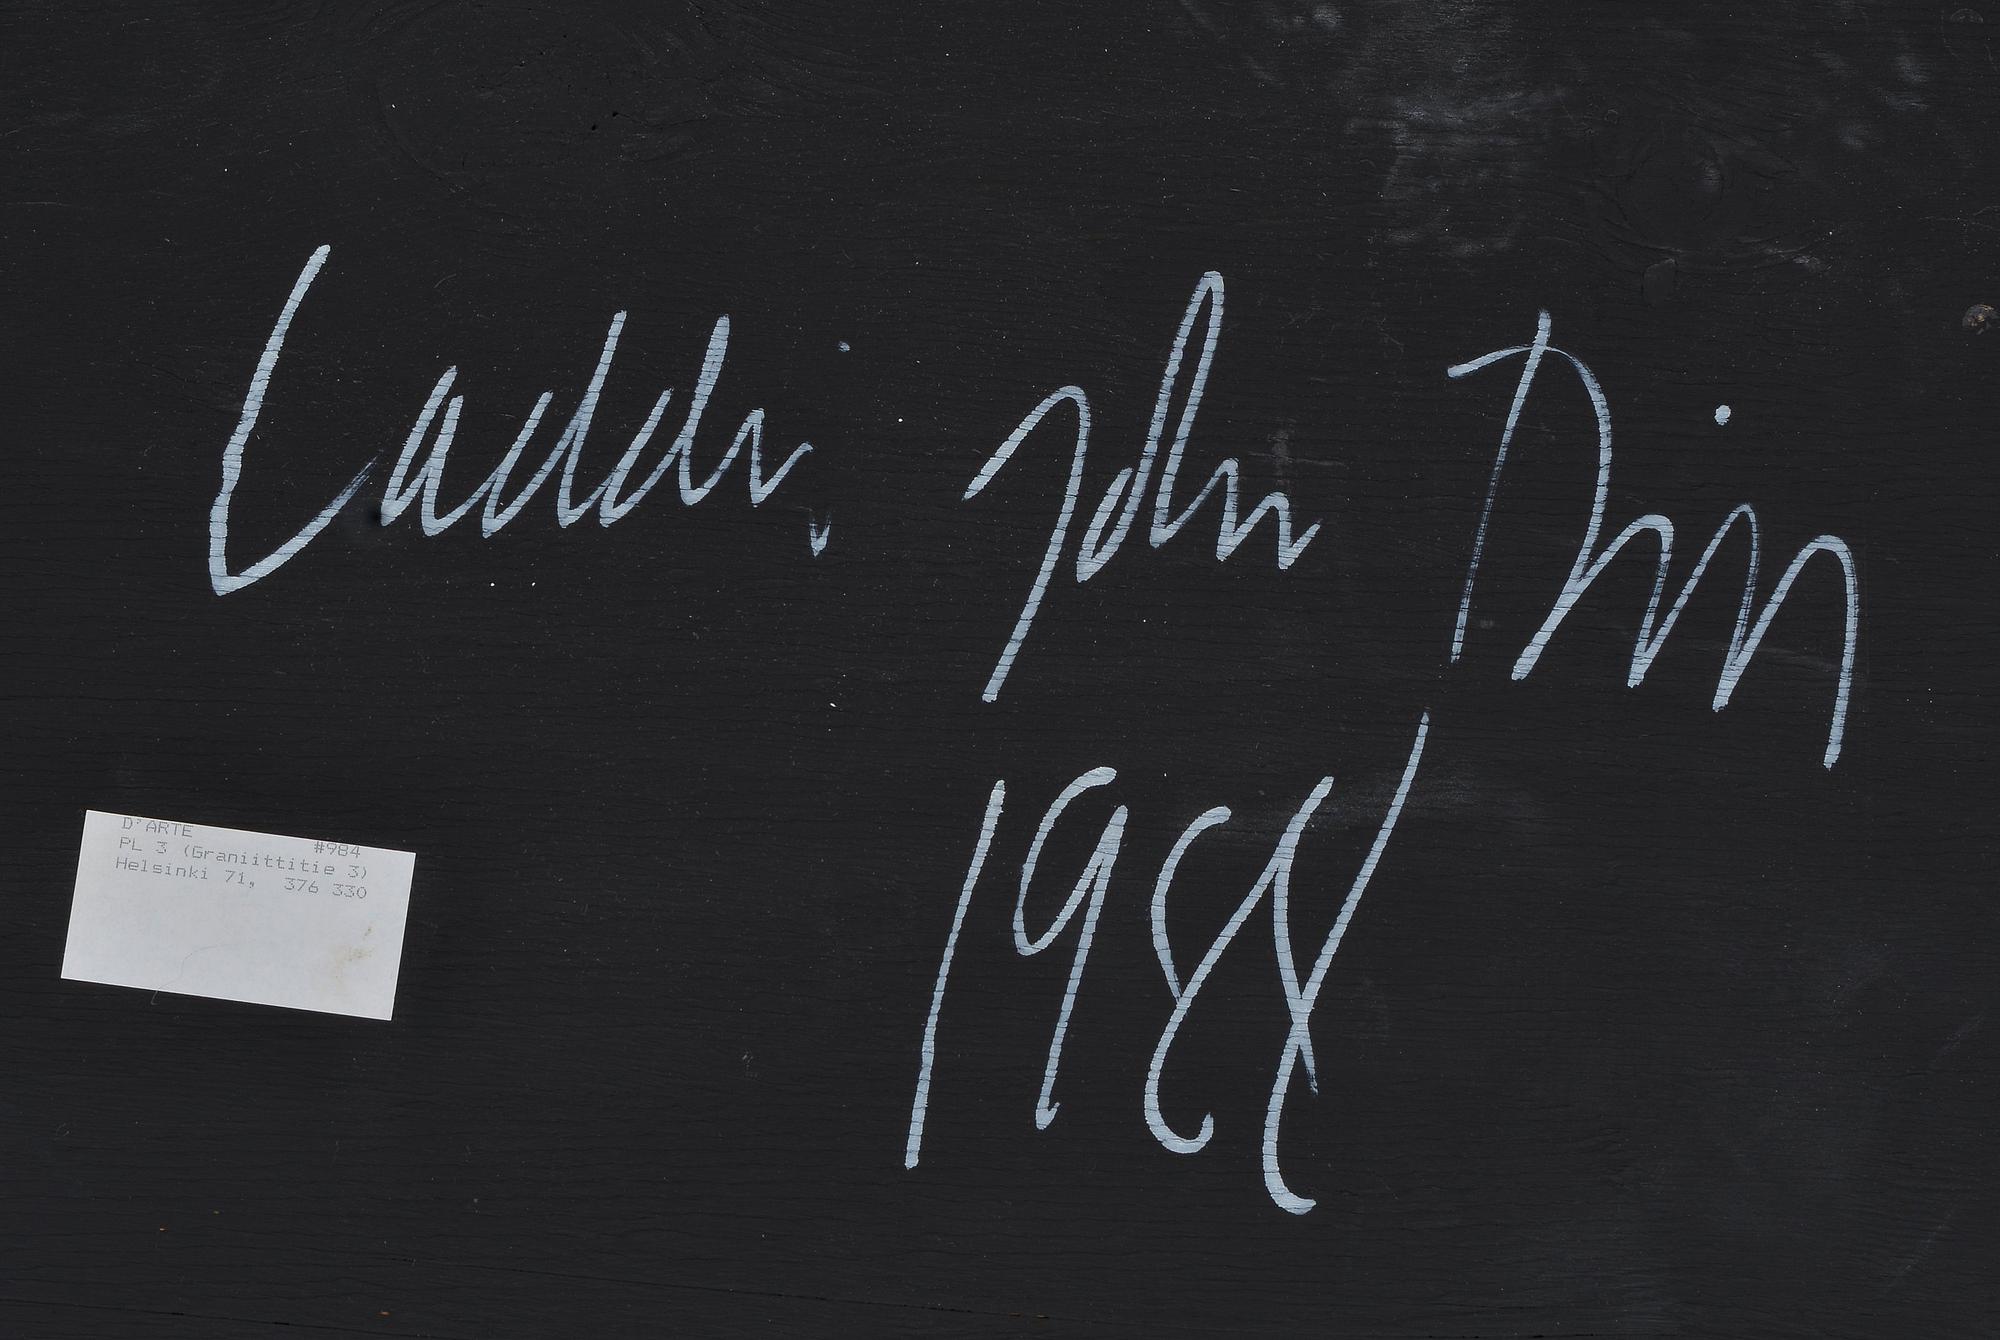 Laddie John Dill
1988
D'ARTE
#984
PL 3 (Graniittitie 3)
Helsinki 71, 376 330